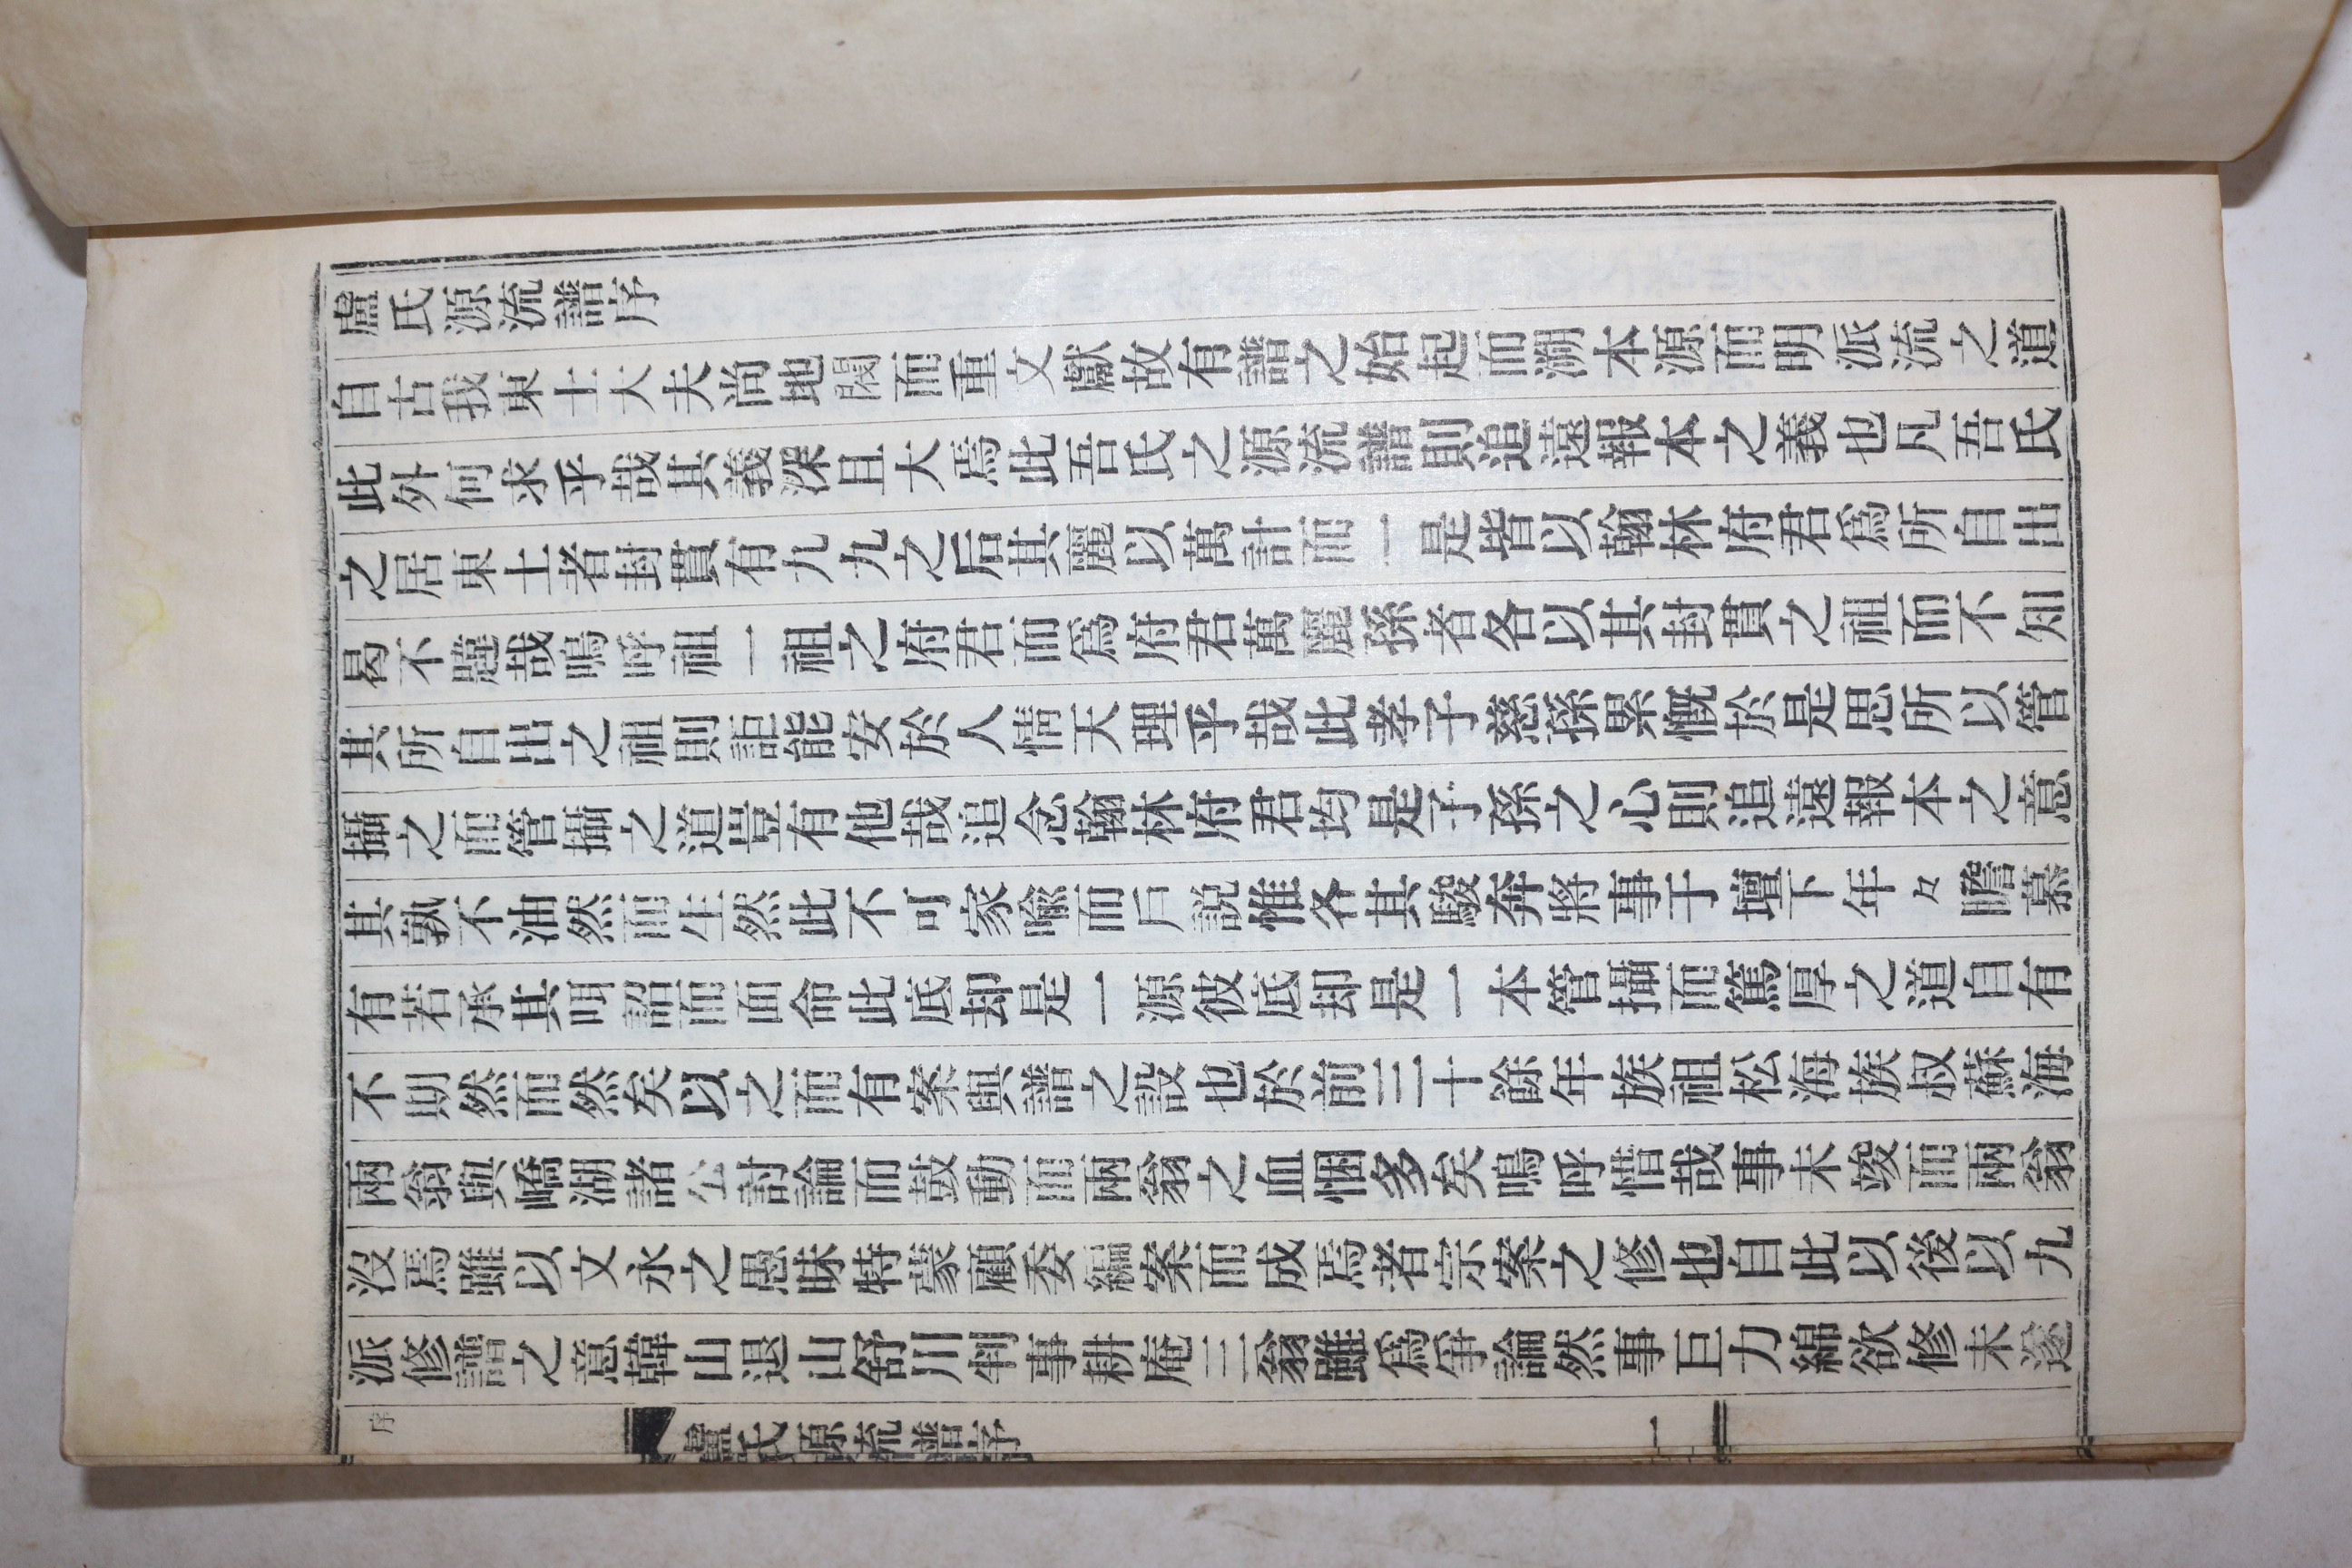 盧氏源流譜序
自古我東士大夫尚地閥而重文獻故有譜之始起而溯本源而明派流之道
此外何求乎哉其義深且大焉此吾氏之源流譜則追遠報本之義也凡吾氏
之居東土者封貫有九九之后其麗以萬計而一是皆以翰林府君爲所自出
曷不韙哉嗚呼祖一祖之府君而爲府君萬麗孫者各以其封貫之祖而不知
其所自出之祖則詎能安於人情天理乎哉此孝子慈孫累慨於是思所以管
攝之而管攝之道豈有他哉追念翰林府君均是子孫之心則追遠報本之意
其孰不油然而生然此不可家喩而戶説惟各其駿奔將事于壇下年々瞻慕
有若承其咡詔而面命此底却是一源彼底却是一本管攝而篤厚之道自有
不期然而然矣以之而有案與譜之設也於前三十餘年族祖松海族叔蘇海
兩翁與嶠湖諸公討論而鼓動而兩翁之血悃多矣嗚呼惜哉事未竣而兩翁
沒焉雖以文永之愚昧特蒙顧委編案而成焉者宗案之修也自此以後以九
派修譜之意韓山退山舒川判事耕庵三翁雖爲爭論然事巨力綿欲修未遂
序
盧氏源流譜序
一